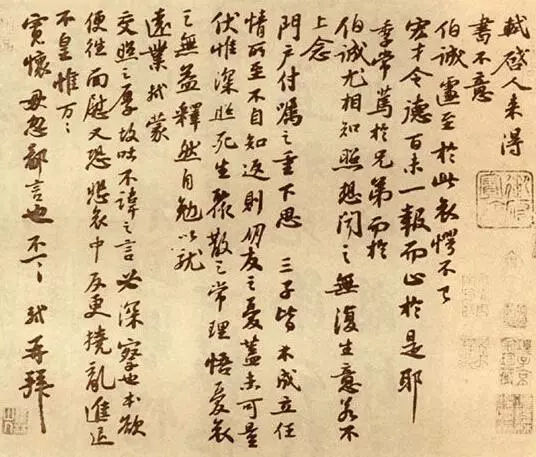 軾啓人来得
書不意
伯誠遽至於此哀愕不已
宏才令德百未一報而止於是耶
季常篤於兄弟而於
伯誠尤相知照想聞之無復生意若不
上念
門户付囑之重下思三子皆未成立任
情所至不自知返則朋友之憂蓋未可量
伏惟深照死生聚散之常理悟憂哀
之無益釋然自勉以就
遠業軾蒙
交照之厚故吐不諱之言必深察也本欲
便往面慰又恐悲哀中反更撓亂進退
不皇惟万〻
寬懷毋忽鄙言也不一〻軾再拜